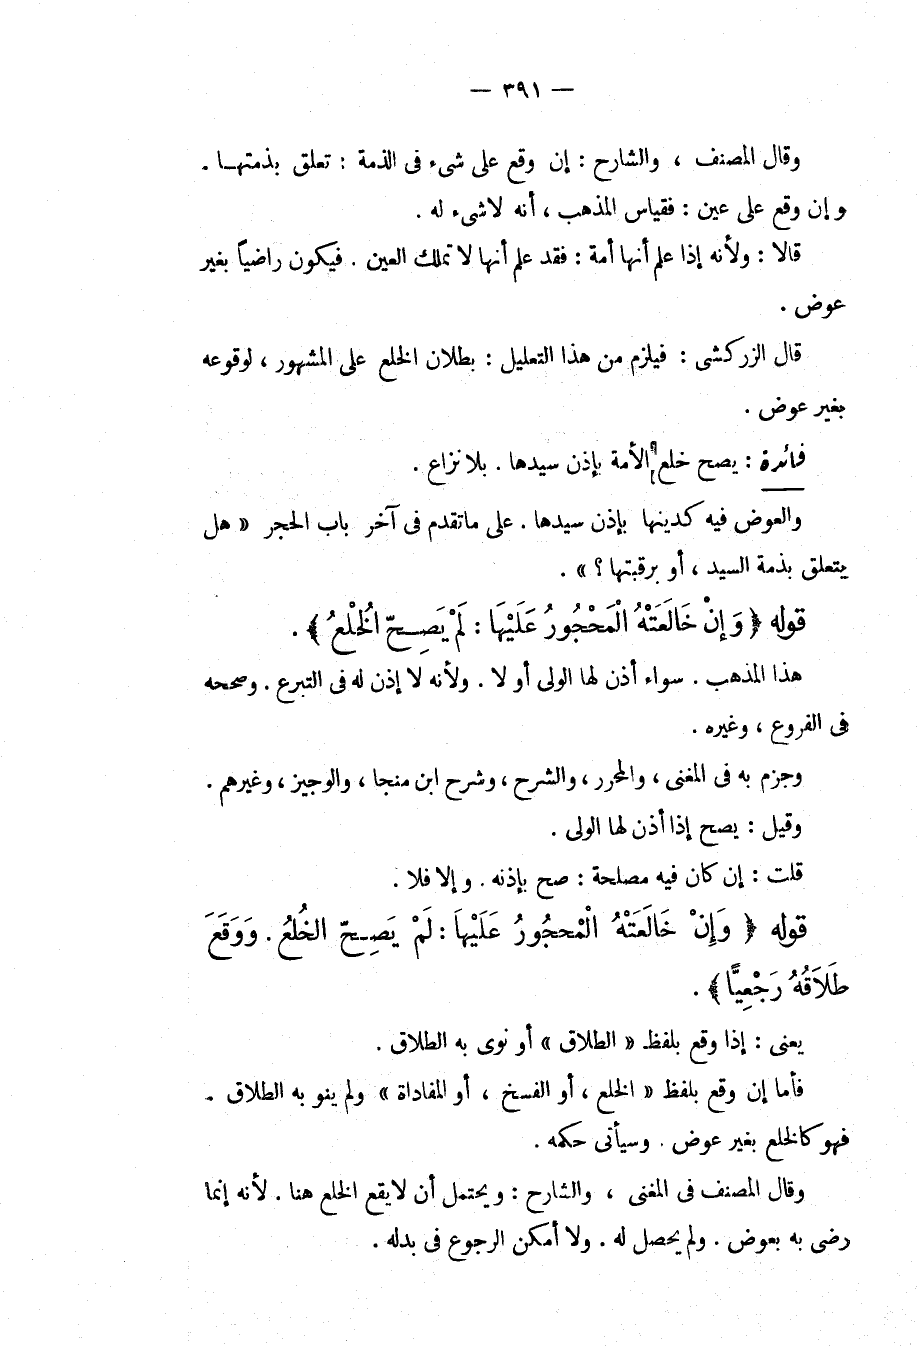 — ٣٩١ —
وقال المصنف ، والشارح : إن وقع على شىء فى الذمة : تعلق بذمتهـا .
و إن وقع على عين : فقياس المذهب ، أنه لاشىء له .
قالا : ولأنه إذا علم أنها أمة : فقد علم أنها لا تملك العين . فيكون راضياً بغير
عوض .
قال الزركشى : فيلزم من هذا التعليل : بطلان الخلع على المشهور ، لوقوعه
بغير عوض .
فائدة : يصح خلع الأمة بإذن سيدها . بلا نزاع .
والعوض فيه كدينها بإذن سيدها . على ماتقدم فى آخر باب الحجر « هل
يتعلق بذمة السيد ، أو برقبتها ؟ » .
قوله ﴿ وَإِنْ خَالَعَتْهُ الْمَحْجُورُ عَلَيْهَا : لَمْ يَصِـحّ الْخُلْعُ ﴾ .
هذا المذهب . سواء أذن لها الولى أو لا . ولأنه لا إذن له فى التبرع . وصححه
فى الفروع ، وغيره .
وجزم به فى المغنى ، والمحرر ، والشرح ، وشرح ابن منجا ، والوجيز ، وغيرهم .
وقيل : يصح إذا أذن لها الولى .
قلت : إن كان فيه مصلحة : صح بإذنه . و إلا فلا .
قوله ﴿ وَإِنْ خَالَعَتْهُ الْمْحجُورُ عَلَيْهاَ : لَمْ يَصِـحّ الخُلعُ . وَوَقَعَ
طَلَاقُهُ رَجْعِيًّا ﴾ .
يعنى : إذا وقع بلفظ « الطلاق » أو نوى به الطلاق .
فأما إن وقع بلفظ « الخلع ، أو الفسخ ، أو المفاداة » ولم ينو به الطلاق .
فهو كالخلع بغير عوض . وسيأتى حكمه .
وقال المصنف فى المغنى ، والشارح : ويحتمل أن لايقع الخلع هنا . لأنه إنما
رضى به بعوض . ولم يحصل له . ولا أمكن الرجوع فى بدله .